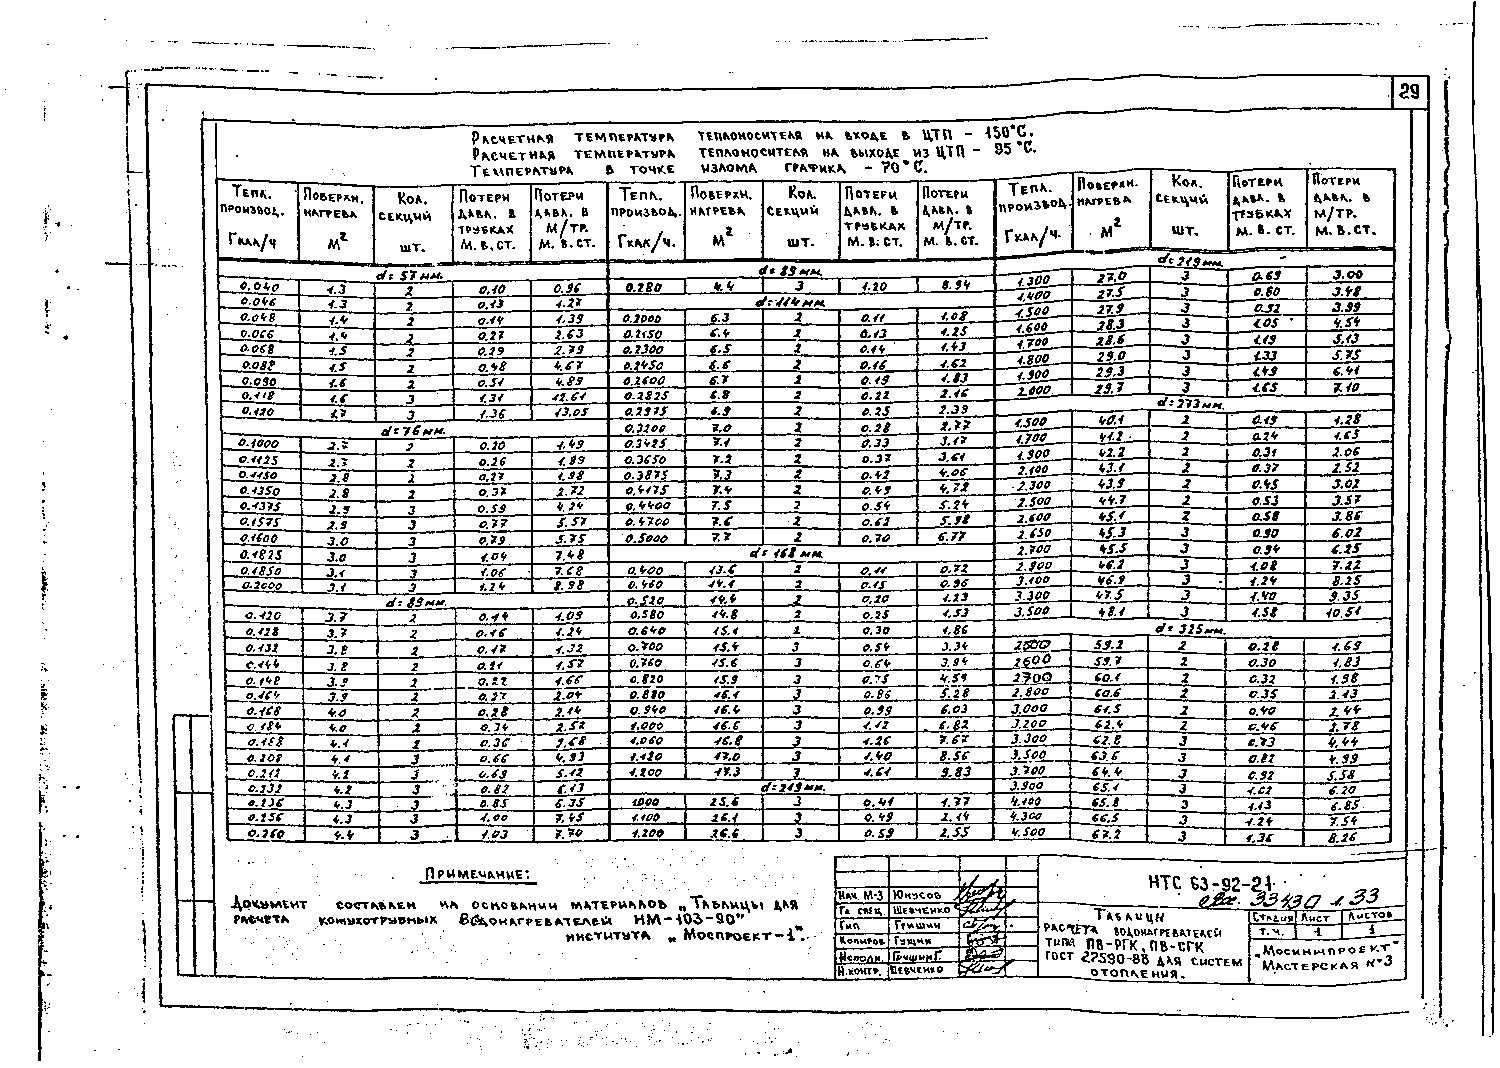 29
Расчетная температура теплоносителя на входе в ЦТП - 150°С.
Расчетная температура теплоносителя на выходе из ЦТП - 95°С.
Температура в точке излома графика - 70°С.
Тепл. производ. Гкал/ч | Поверхн. нагрева м² | Кол. секций шт. | Потери давл. в трубках м.в.ст. | Потери давл. в м/тр. м.в.ст.
d=57мм.
0.040 1.3 2 0.10 0.96
0.046 1.3 2 0.13 1.27
0.048 1.4 2 0.14 1.39
0.066 1.4 2 0.27 2.63
0.068 1.5 2 0.29 2.79
0.088 1.5 2 0.48 4.67
0.090 1.6 2 0.51 4.89
0.118 1.6 3 1.31 12.61
0.120 1.7 3 1.36 13.05
d=76мм.
0.1000 2.7 2 0.20 1.49
0.1125 2.7 2 0.26 1.89
0.1150 2.8 2 0.27 1.98
0.1350 2.8 2 0.37 2.72
0.1375 2.9 3 0.59 4.24
0.1575 2.9 3 0.77 5.57
0.1600 3.0 3 0.79 5.75
0.1825 3.0 3 1.04 7.48
0.1850 3.1 3 1.06 7.68
0.2000 3.1 3 1.24 8.98
d=89мм.
0.120 3.7 2 0.14 1.09
0.128 3.7 2 0.16 1.24
0.132 3.8 2 0.17 1.32
0.144 3.8 2 0.21 1.57
0.148 3.9 2 0.22 1.66
0.164 3.9 2 0.27 2.04
0.168 4.0 2 0.28 2.14
0.184 4.0 2 0.34 2.52
0.188 4.1 2 0.36 2.68
0.208 4.1 3 0.66 4.93
0.212 4.2 3 0.69 5.12
0.232 4.2 3 0.82 6.13
0.236 4.3 3 0.85 6.35
0.256 4.3 3 1.00 7.45
0.260 4.4 3 1.03 7.70
Тепл. производ. Гкал/ч. | Поверхн. нагрева м² | Кол. секций шт. | Потери давл. в трубках м.в.ст. | Потери давл. в м/тр. м.в.ст.
d=89мм.
0.280 4.4 3 1.20 8.94
d=114мм.
0.2000 6.3 2 0.11 1.08
0.2150 6.4 2 0.13 1.25
0.2300 6.5 2 0.14 1.43
0.2450 6.6 2 0.16 1.62
0.2600 6.7 2 0.19 1.83
0.2825 6.8 2 0.22 2.16
0.2975 6.9 2 0.25 2.39
0.3200 7.0 2 0.28 2.77
0.3425 7.1 2 0.33 3.17
0.3650 7.2 2 0.37 3.61
0.3875 7.3 2 0.42 4.06
0.4175 7.4 2 0.49 4.72
0.4400 7.5 2 0.54 5.24
0.4700 7.6 2 0.62 5.98
0.5000 7.7 2 0.70 6.77
d=168мм.
0.400 13.6 2 0.11 0.72
0.460 14.1 2 0.15 0.96
0.520 14.4 2 0.20 1.23
0.580 14.8 2 0.25 1.53
0.640 15.1 2 0.30 1.86
0.700 15.4 3 0.54 3.34
0.760 15.6 3 0.64 3.94
0.820 15.9 3 0.75 4.59
0.880 16.1 3 0.86 5.28
0.940 16.4 3 0.99 6.03
1.000 16.6 3 1.12 6.82
1.060 16.8 3 1.26 7.67
1.120 17.0 3 1.40 8.56
1.200 17.3 3 1.61 9.83
d=219мм.
1.000 25.6 3 0.41 1.77
1.100 26.1 3 0.49 2.14
1.200 26.6 3 0.59 2.55
Тепл. производ. Гкал/ч. | Поверхн. нагрева м² | Кол. секций шт. | Потери давл. в трубках м.в.ст. | Потери давл. в м/тр. м.в.ст.
d=219мм.
1.300 27.0 3 0.69 3.00
1.400 27.5 3 0.80 3.48
1.500 27.9 3 0.92 3.99
1.600 28.3 3 1.05 4.54
1.700 28.6 3 1.19 5.13
1.800 29.0 3 1.33 5.75
1.900 29.3 3 1.49 6.41
2.000 29.7 3 1.65 7.10
d=273мм.
1.500 40.1 2 0.19 1.28
1.700 41.2 2 0.24 1.65
1.900 42.2 2 0.31 2.06
2.100 43.1 2 0.37 2.52
2.300 43.9 2 0.45 3.02
2.500 44.7 2 0.53 3.57
2.600 45.1 2 0.58 3.86
2.650 45.3 3 0.90 6.02
2.700 45.5 3 0.94 6.25
2.900 46.2 3 1.08 7.22
3.100 46.9 3 1.24 8.25
3.300 47.5 3 1.40 9.35
3.500 48.1 3 1.58 10.51
d=325мм.
2500 59.2 2 0.28 1.69
2600 59.7 2 0.30 1.83
2700 60.1 2 0.32 1.98
2.800 60.6 2 0.35 2.13
3.000 61.5 2 0.40 2.44
3.200 62.4 2 0.46 2.78
3.300 62.8 3 0.73 4.44
3.500 63.6 3 0.82 4.99
3.700 64.4 3 0.92 5.58
3.900 65.1 3 1.02 6.20
4.100 65.8 3 1.13 6.85
4.300 66.5 3 1.24 7.54
4.500 67.2 3 1.36 8.26
Примечание:
Документ составлен на основании материалов „Таблицы для
расчета кожухотрубных водонагревателей НМ-103-90"
института „Моспроект-1".
Нач. М-3 Юнусов
Гл. спец. Шевченко
Гип Гришин
Копиров.
Исполн. Гришин Г.
Н.контр. Шевченко
НТС 63-92-21
33430 л.33
Таблицы
расчета водонагревателей
типа ПВ-РГК, ПВ-СГК
ГОСТ 27590-88 для систем
отопления.
Стадия Лист Листов
Т.ч. 1 1
„Мосинжпроект"
Мастерская №3